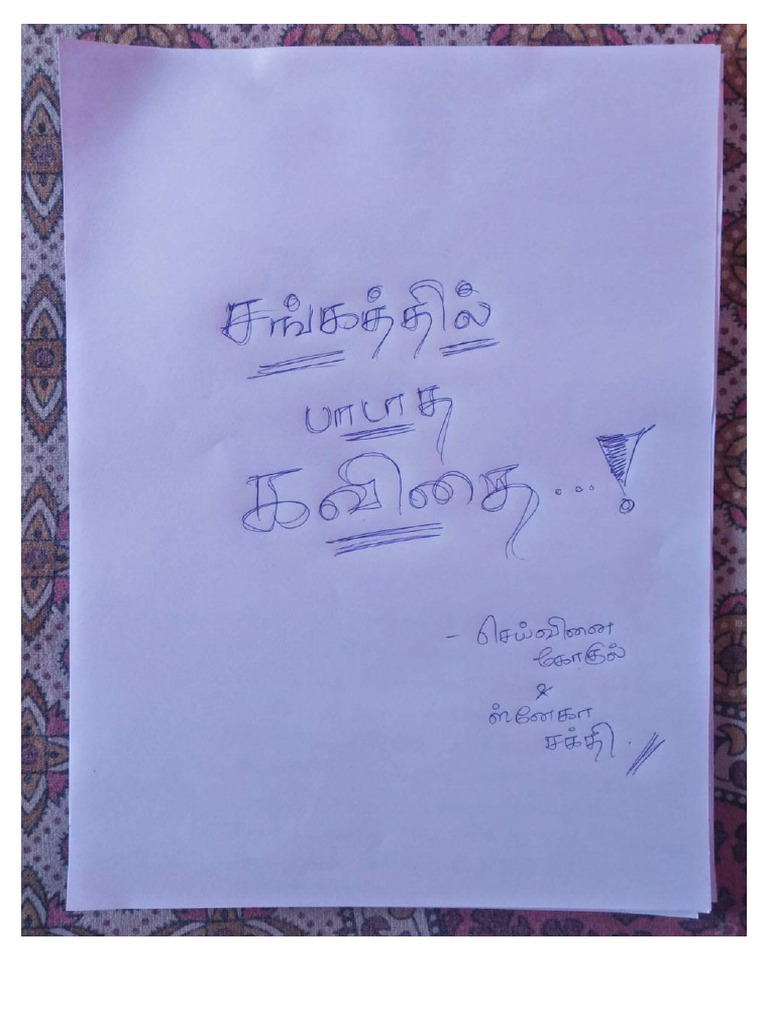 சங்கத்தில்
பாடாத
கவிதை...!
- செய்வினை
கோகுல்
&
ஸ்னேகா
சக்தி.